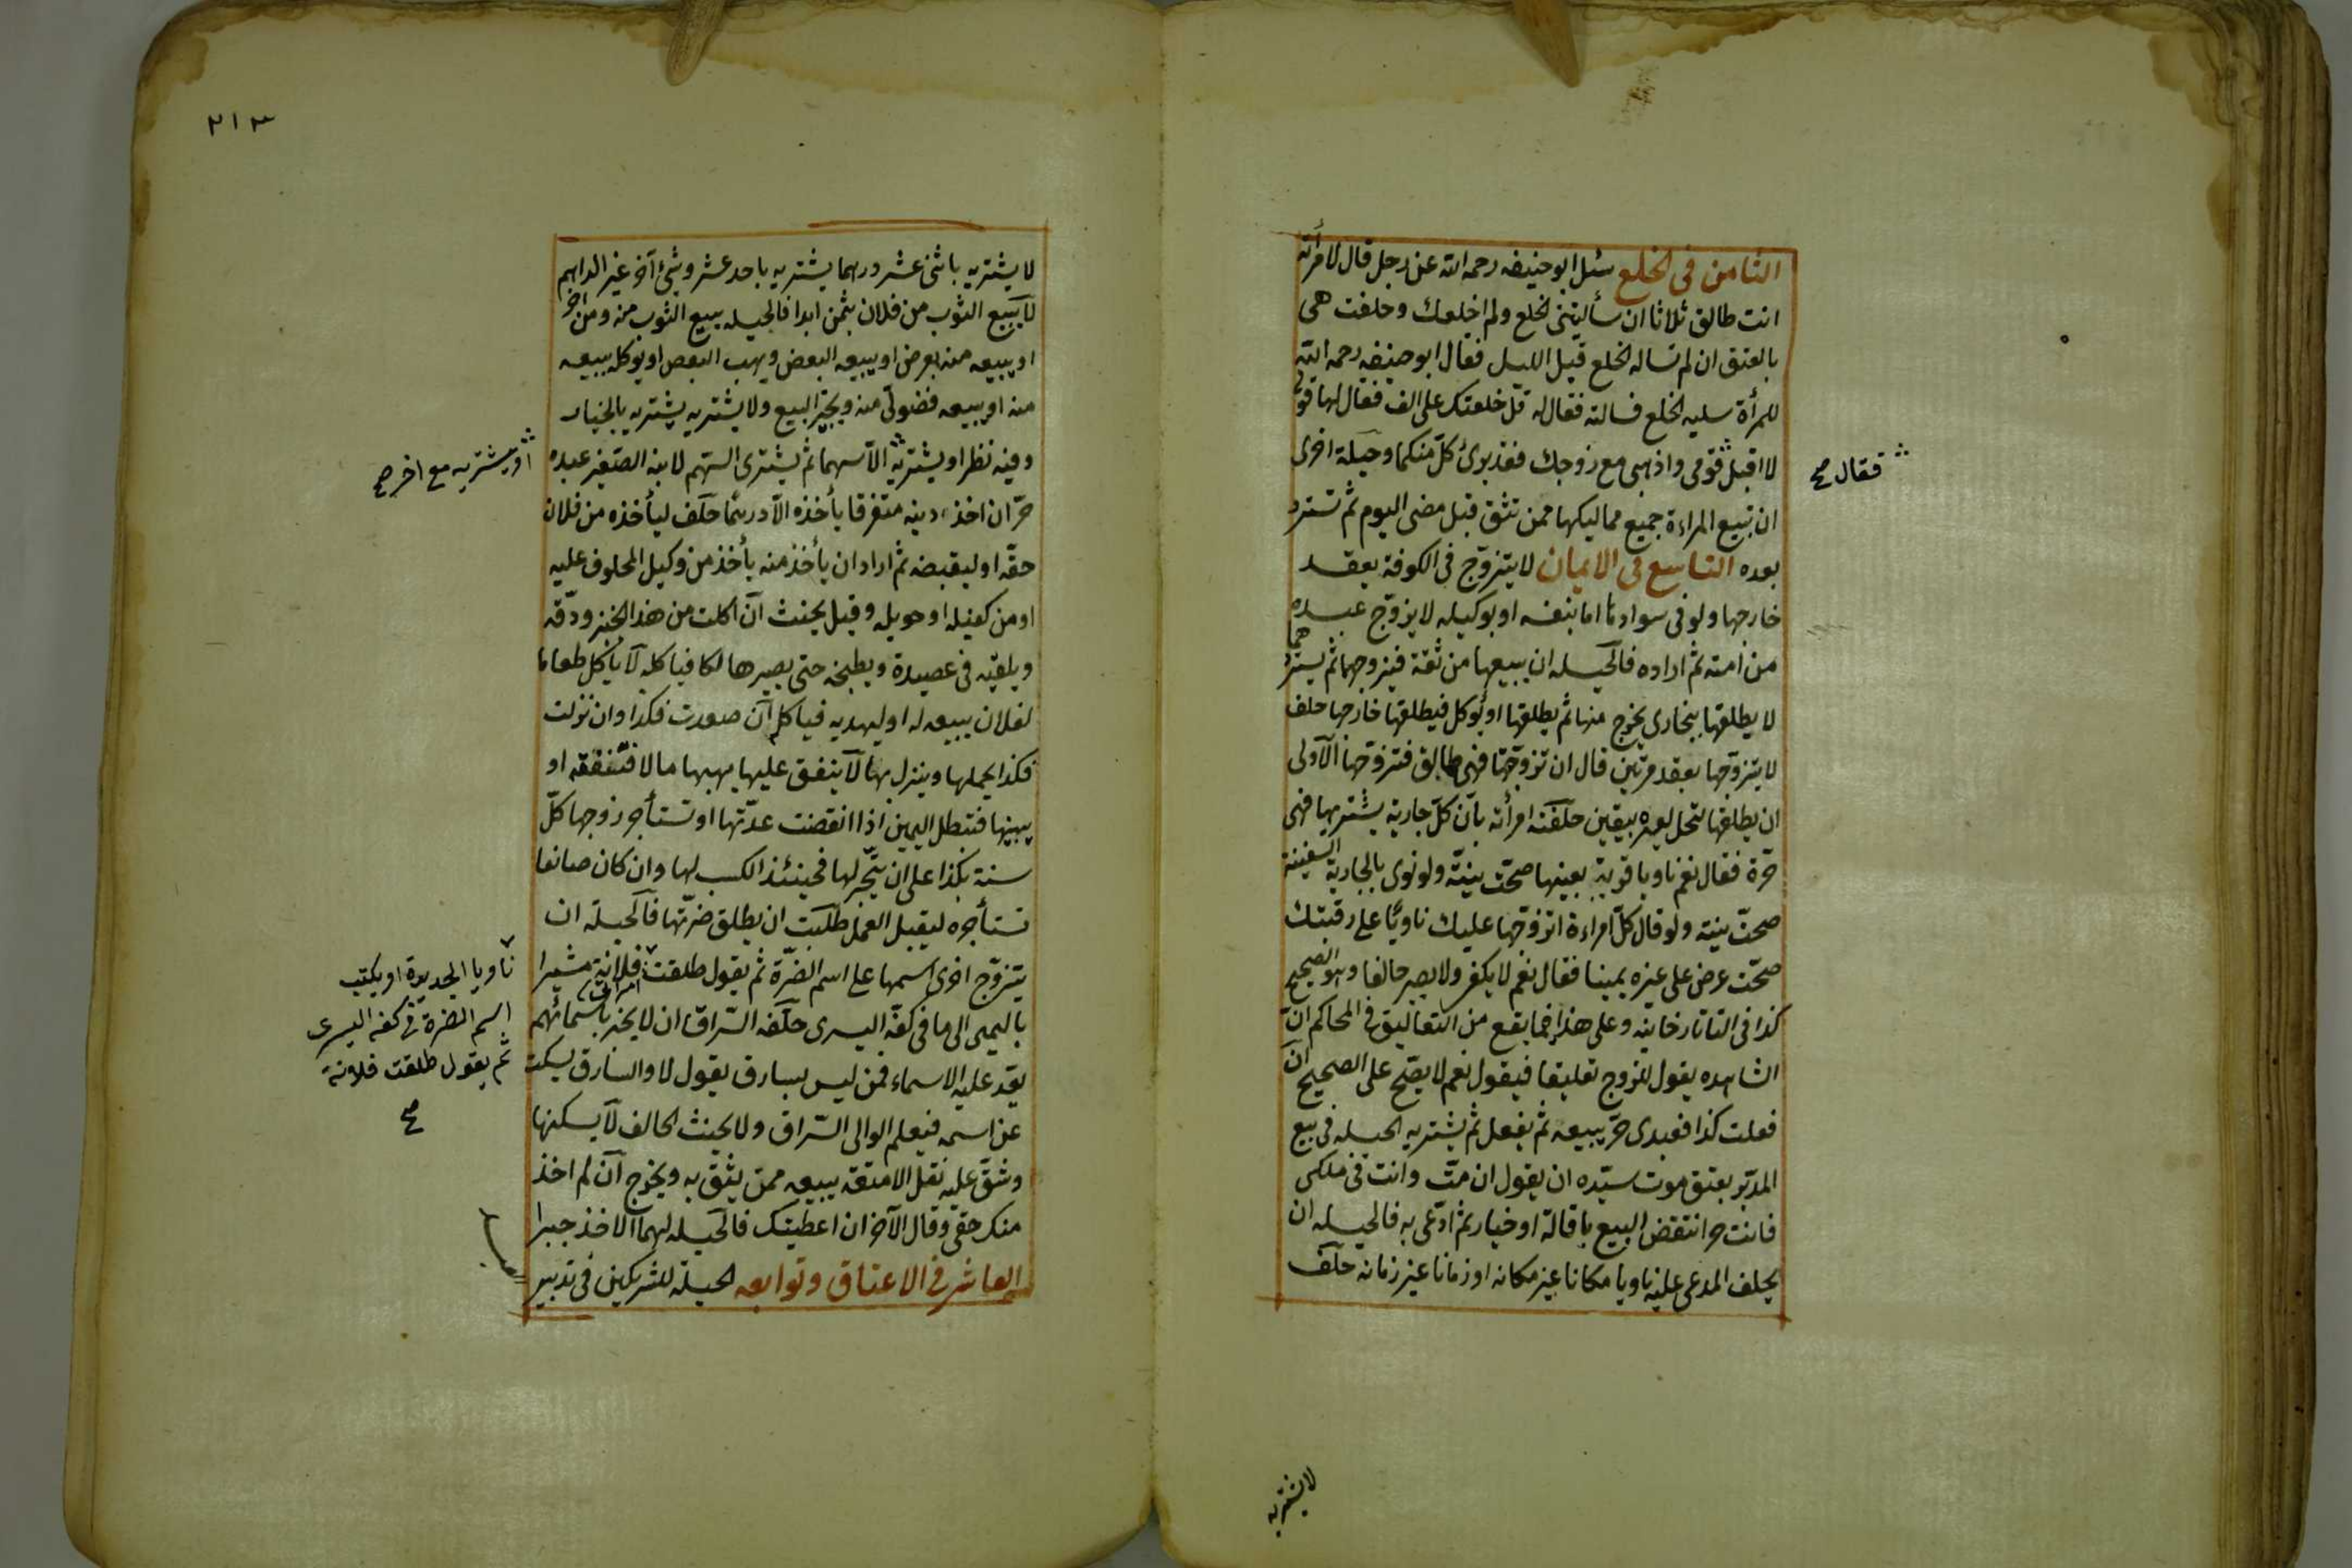 الثامن فى الخلع سئل ابو حنيفه رحمه الله عن رجل قال لامرأته
انت طالق ثلاثا ان سألتينى الخلع ولم اخلعك وحلفت هى
بالعتق ان لم تساله الخلع قبل الليل فقال ابو حنيفه رحمه الله
للمرأة سليه الخلع فسالته فقال له قل خلعتك على الف فقال لها قولى
لا اقبل قومى واذهبى مع زوجك فقد برئ كل منكما وحيلة اخرى
فقال صح
ان تبيع المراءة جميع مماليكها ممن تثق قبل مضى اليوم ثم تسترد
بعده التاسع فى الايمان لا يتزوج فى الكوفة يعقد
خارجها ولو فى سوادها اما بنفسه او بوكيله لا يزوج عبده
من امته ثم اراده فالحيله ان يبيعهما من ثقة فيزوجهما ثم يستردهما
لا يطلقها ببخارى يخرج منها ثم يطلقها او يوكل فيطلقها خارجها حلف
لا يتزوجها يعقد مرتين قال ان تزوجتها فهى طالق فتزوجها الاولى
ان يطلقها لتحل لغيره بيقين حلفته امرأته بان كل جارية يشتريها فهى
حرة فقال نعم ناويا قرية بعينها صحت نيته ولو نوى بالجارية السفينة
صحت نيته ولو قال كل امراءة اتزوجها عليك ناويا على رقبتك
صحت عرض على غيره يمينا فقال نعم لا يكفى ولا يصير حالفا وهو الصحيح
كذا فى التاتارخانيه وعلى هذا فما يقع من التعاليق فى المحاكم ان
الشاهده يقول للزوج تعليقا فيقول نعم لا يصح على الصحيح ان
فعلت كذا فعبدى حر يبيعه ثم يفعل ثم يشتريه الحيله فى بيع
المدبر يعتق موت سيده ان يقول ان مت وانت فى ملكى
فانت حر انتقض البيع باقالة او خيار ثم ادعى به فالحيله ان
يحلف المدعى عليه ناويا مكانا غير مكانه او زمانا غير زمانه حلف
لا يشتريه
٢١٣
لا يشتريه باثنى عشر درهما يشتريه باحد عشر وشئ آخر غير الدراهم
لا يبيع الثوب من فلان بثمن ابدا فالحيله يبيع الثوب منه ومن آخر
او يبيعه منه بعرض او يبيعه البعض ويهب البعض او يوكله ببيعه
منه او يبيعه فضولى منه ويجيز البيع ولا يشتريه يشتريه بالخيار
وفيه نظر او يشتريه الا سهما ثم يشترى السهم لابنه الصغير عبده
او يشتريه مع اخر صح
حر ان اخذ دينه متفرقا يأخذه الا درهما حلف ليأخذه من فلان
حقه او ليقبضه ثم اراد ان يأخذ منه يأخذ من وكيل المحلوف عليه
او من كفيله او حويله وقيل يحنث ان اكلت من هذا الخبز ودقه
ويلقيه فى عصيدة ويطبخه حتى يصير هالكا فياكله لا يأكل طعاما
لفلان يبيعه له او ليهديه فياكل ان صعدت فكذا وان نزلت
فكذا يحملها وينزل بها لا ينفق عليها يهبها مالا فتنفقه او
يبينها فتبطل اليمين اذا انقضت عدتها او تستأجر زوجها كل
سنة بكذا على ان يتجر لها فحينئذ الكسب لها وان كان صانعا
تستأجره ليقبل العمل طلبت ان يطلق ضرتها فالحيلة ان
يتزوج اخرى اسمها على اسم الضرة ثم يقول طلقت امراتى فلانة مشيرا
ناويا الجديدة او يكتب
اسم الضرة فى كفه اليسرى
ثم يقول طلقت فلانة
صح
باليمنى الى ما فى كفه اليسرى حلفه السراق ان لا يخبر باسمائهم
يعد عليه الاسماء فمن ليس بسارق يقول لا والسارق يسكت
عن اسمه فيعلم الوالى السراق ولا يحنث الحالف لا يسكنها
وشق عليه نقل الامتعة يبيعه ممن يثق به ويخرج ان لم اخذ
منك حقى وقال الآخر ان اعطيتك فالحيله لهما الاخذ جبرا
العاشر فى الاعتاق وتوابعه الحيلة للشريكين فى تدبير